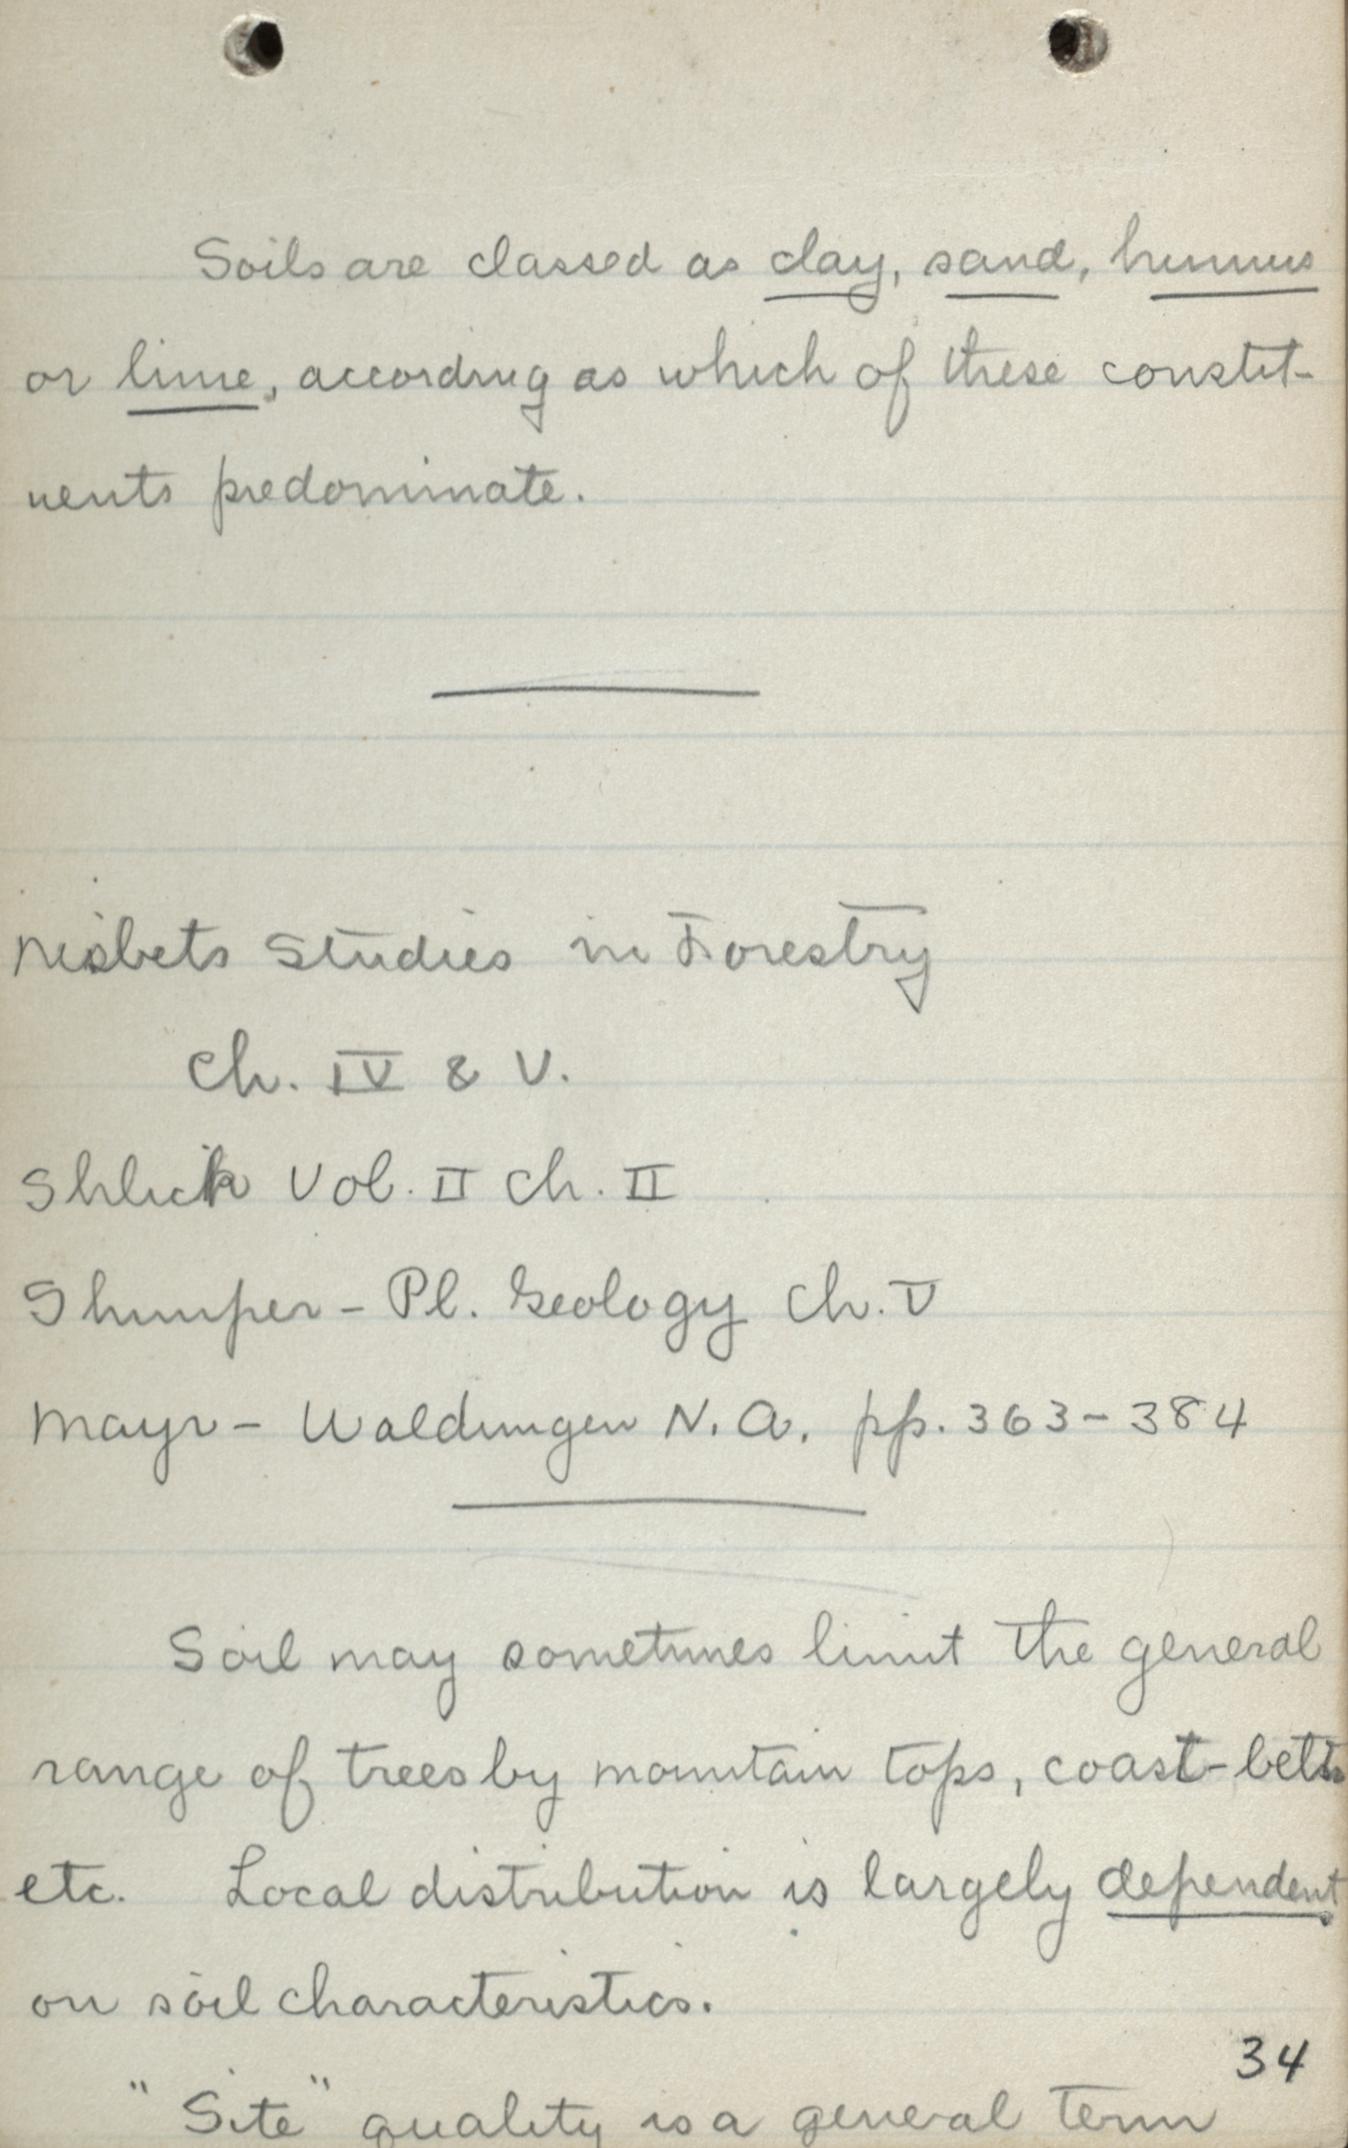 Soils are classed as clay, sand, humus
or lime, according as which of these constit-
uents predominate.
Nisbets Studies in Forestry
Ch. IV & V.
Shlick Vol. II Ch. II
Shimper - Pl. Geology Ch. V
Mayr - Waldungen N. A. pp. 363-384
Soil may sometimes limit the general
range of trees by mountain tops, coast-belts
etc. Local distribution is largely dependent
on soil characteristics.
34
"Site" quality is a general term